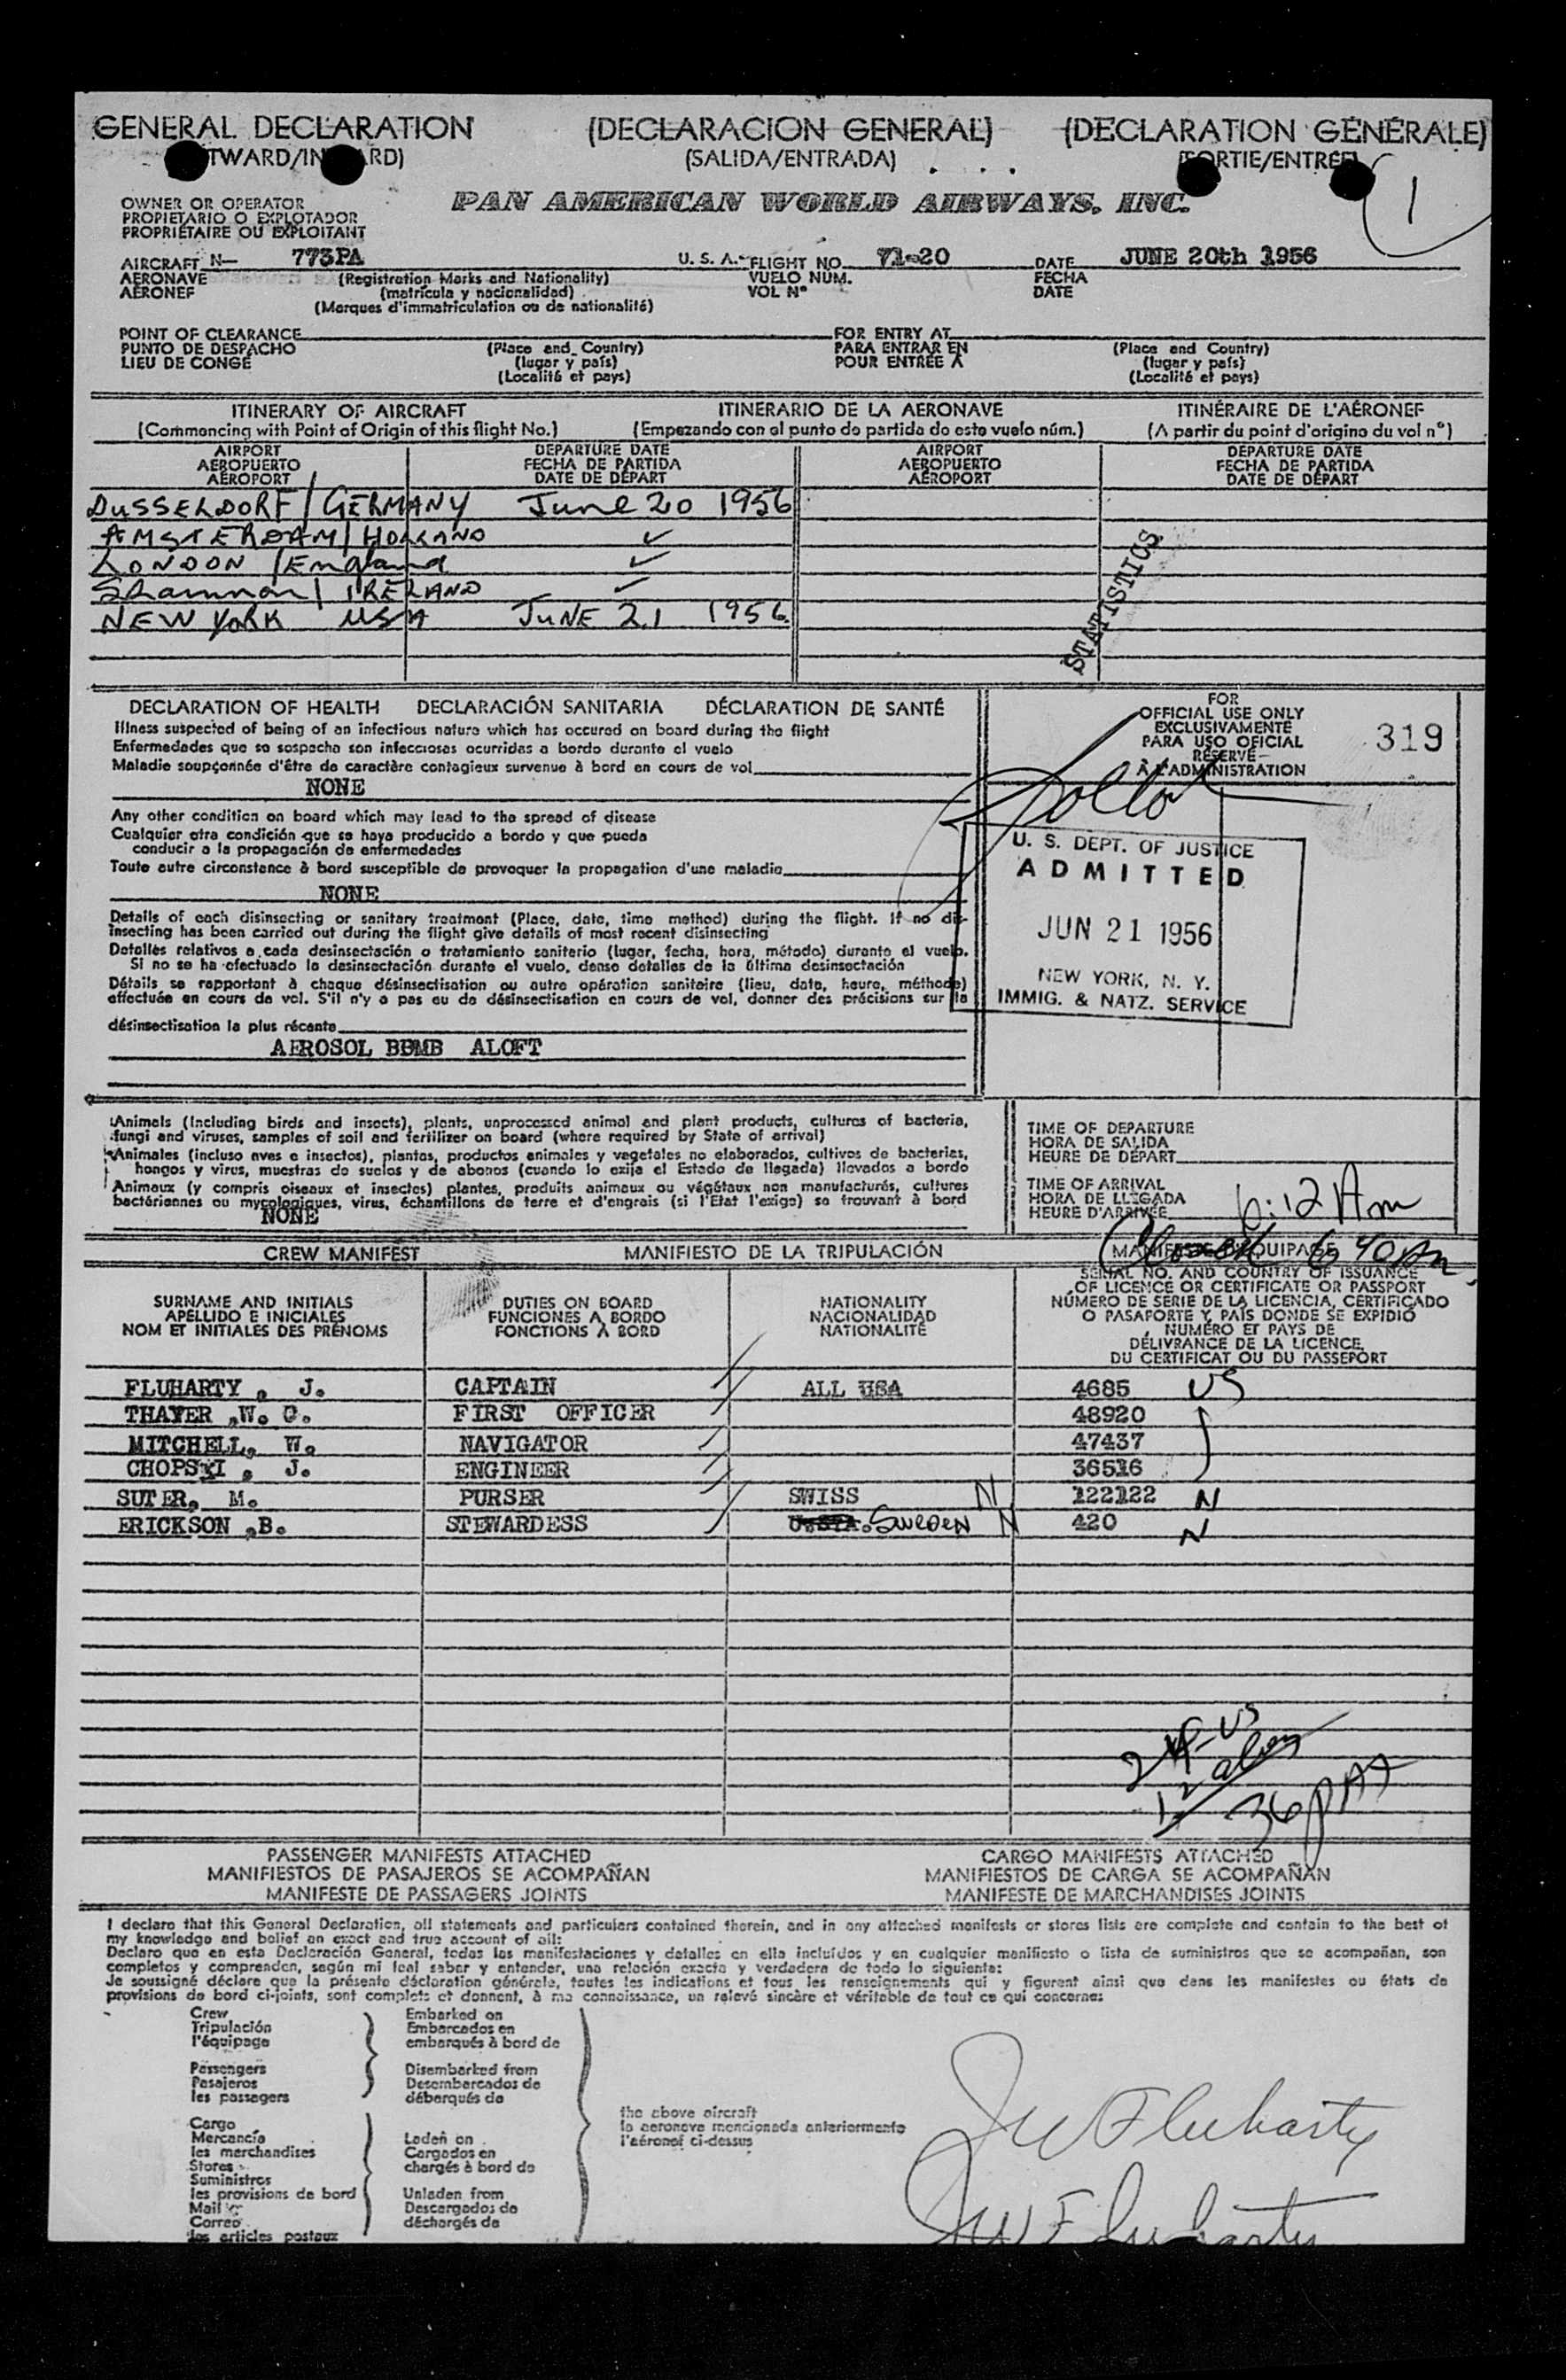 GENERAL DECLARATION (DECLARACION GENERAL) (DECLARATION GÉNÉRALE)
(SALIDA/ENTRADA)
1
OWNER OR OPERATOR
PROPIETARIO O EXPLOTADOR
PROPRIÉTAIRE OU EXPLOITANT
PAN AMERICAN WORLD AIRWAYS, INC.
AIRCRAFT N— 773PA U. S. A. FLIGHT NO. 71-20 DATE JUNE 20th 1956
AERONAVE (Registration Marks and Nationality) VUELO NÚM. FECHA
AÉRONEF (matrícula y nacionalidad) VOL Nº DATE
(Marques d'immatriculation ou de nationalité)
POINT OF CLEARANCE FOR ENTRY AT
PUNTO DE DESPACHO (Place and Country) PARA ENTRAR EN (Place and Country)
LIEU DE CONGÉ (lugar y país) POUR ENTRÉE À (lugar y país)
(Localité et pays) (Localité et pays)
ITINERARY OF AIRCRAFT ITINERARIO DE LA AERONAVE ITINÉRAIRE DE L'AÉRONEF
(Commencing with Point of Origin of this flight No.) (Empezando con el punto de partida de este vuelo núm.) (A partir du point d'origine du vol nº)
AIRPORT DEPARTURE DATE AIRPORT DEPARTURE DATE
AEROPUERTO FECHA DE PARTIDA AEROPUERTO FECHA DE PARTIDA
AÉROPORT DATE DE DÉPART AÉROPORT DATE DE DÉPART
DUSSELDORF / GERMANY June 20 1956
AMSTERDAM / HOLLAND ✓
LONDON / England ✓
Shannon / IRELAND ✓
NEW YORK USA JUNE 21 1956
STATISTICS
DECLARATION OF HEALTH DECLARACIÓN SANITARIA DÉCLARATION DE SANTÉ
Illness suspected of being of an infectious nature which has occured on board during the flight
Enfermedades que se sospecha son infecciosas ocurridas a bordo durante el vuelo
Maladie soupçonnée d'être de caractère contagieux survenue à bord en cours de vol
NONE
Any other condition on board which may lead to the spread of disease
Cualquier otra condición que se haya producido a bordo y que pueda
conducir a la propagación de enfermedades
Toute autre circonstance à bord susceptible de provoquer la propagation d'une maladie
NONE
Details of each disinsecting or sanitary treatment (Place, date, time method) during the flight. If no dis-
insecting has been carried out during the flight give details of most recent disinsecting
Detalles relativos a cada desinsectación o tratamiento sanitario (lugar, fecha, hora, método) durante el vuelo.
Si no se ha efectuado la desinsectación durante el vuelo, dense detalles de la última desinsectación
Détails se rapportant à chaque désinsectisation ou autre opération sanitaire (lieu, date, heure, méthode)
effectuée en cours de vol. S'il n'y a pas eu de désinsectisation en cours de vol, donner des précisions sur la
désinsectisation la plus récente
AEROSOL BBMB ALOFT
FOR
OFFICIAL USE ONLY
EXCLUSIVAMENTE
PARA USO OFICIAL
RÉSERVÉ
À L'ADMINISTRATION
319
U. S. DEPT. OF JUSTICE
ADMITTED
JUN 21 1956
NEW YORK, N. Y.
IMMIG. & NATZ. SERVICE
Animals (Including birds and insects), plants, unprocessed animal and plant products, cultures of bacteria,
fungi and viruses, samples of soil and fertilizer on board (where required by State of arrival)
Animales (incluso aves e insectos), plantas, productos animales y vegetales no elaborados, cultivos de bacterias,
hongos y virus, muestras de suelos y de abonos (cuando lo exija el Estado de llegada) llevados a bordo
Animaux (y compris oiseaux et insectes) plantes, produits animaux ou végétaux non manufacturés, cultures
bactériennes ou mycologiques, virus, échantillons de terre et d'engrais (si l'Etat l'exige) se trouvant à bord
NONE
TIME OF DEPARTURE
HORA DE SALIDA
HEURE DE DÉPART
TIME OF ARRIVAL
HORA DE LLEGADA
HEURE D'ARRIVÉE 6:12 Am
6 40 Am
CREW MANIFEST MANIFIESTO DE LA TRIPULACIÓN
SURNAME AND INITIALS DUTIES ON BOARD NATIONALITY
APELLIDO E INICIALES FUNCIONES A BORDO NACIONALIDAD
NOM ET INITIALES DES PRÉNOMS FONCTIONS À BORD NATIONALITÉ
SERIAL NO. AND COUNTRY OF ISSUANCE
OF LICENCE OR CERTIFICATE OR PASSPORT
NÚMERO DE SERIE DE LA LICENCIA, CERTIFICADO
O PASAPORTE Y PAÍS DONDE SE EXPIDIÓ
NUMÉRO ET PAYS DE
DÉLIVRANCE DE LA LICENCE,
DU CERTIFICAT OU DU PASSEPORT
FLUHARTY , J. CAPTAIN ALL USA 4685 US
THAYER ,W. G. FIRST OFFICER 48920
MITCHELL, W. NAVIGATOR 47437
CHOPSKI , J. ENGINEER 36516
SUTER, M. PURSER SWISS N 122122 N
ERICKSON ,B. STEWARDESS SWEDEN N 420 N
24-US
12 alien
36 PAX
PASSENGER MANIFESTS ATTACHED CARGO MANIFESTS ATTACHED
MANIFIESTOS DE PASAJEROS SE ACOMPAÑAN MANIFIESTOS DE CARGA SE ACOMPAÑAN
MANIFESTE DE PASSAGERS JOINTS MANIFESTE DE MARCHANDISES JOINTS
I declare that this General Declaration, all statements and particulars contained therein, and in any attached manifests or stores lists are complete and contain to the best of
my knowledge and belief an exact and true account of all:
Declaro que en esta Declaración General, todas las manifestaciones y detalles en ella incluídos y en cualquier manifiesto o lista de suministros que se acompañan, son
completos y comprenden, según mi leal saber y entender, una relación exacta y verdadera de todo lo siguiente:
Je soussigné déclare que la présente déclaration générale, toutes les indications et tous les renseignements qui y figurent ainsi que dans les manifestes ou états de
provisions de bord ci-joints, sont complets et donnent, à ma connaissance, un relevé sincère et véritable de tout ce qui concerne:
Crew Embarked on
Tripulación Embarcados en
l'équipage embarqués à bord de
Passengers Disembarked from
Pasajeros Desembarcados de
les passagers débarqués de
the above aircraft
la aeronave mencionada anteriormente
l'aéronef ci-dessus
Cargo
Mercancía Laden on
les marchandises Cargados en
Stores chargés à bord de
Suministros
les provisions de bord Unladen from
Mail Descargados de
Correo déchargés de
les articles postaux
JW Fluharty
JW Fluharty